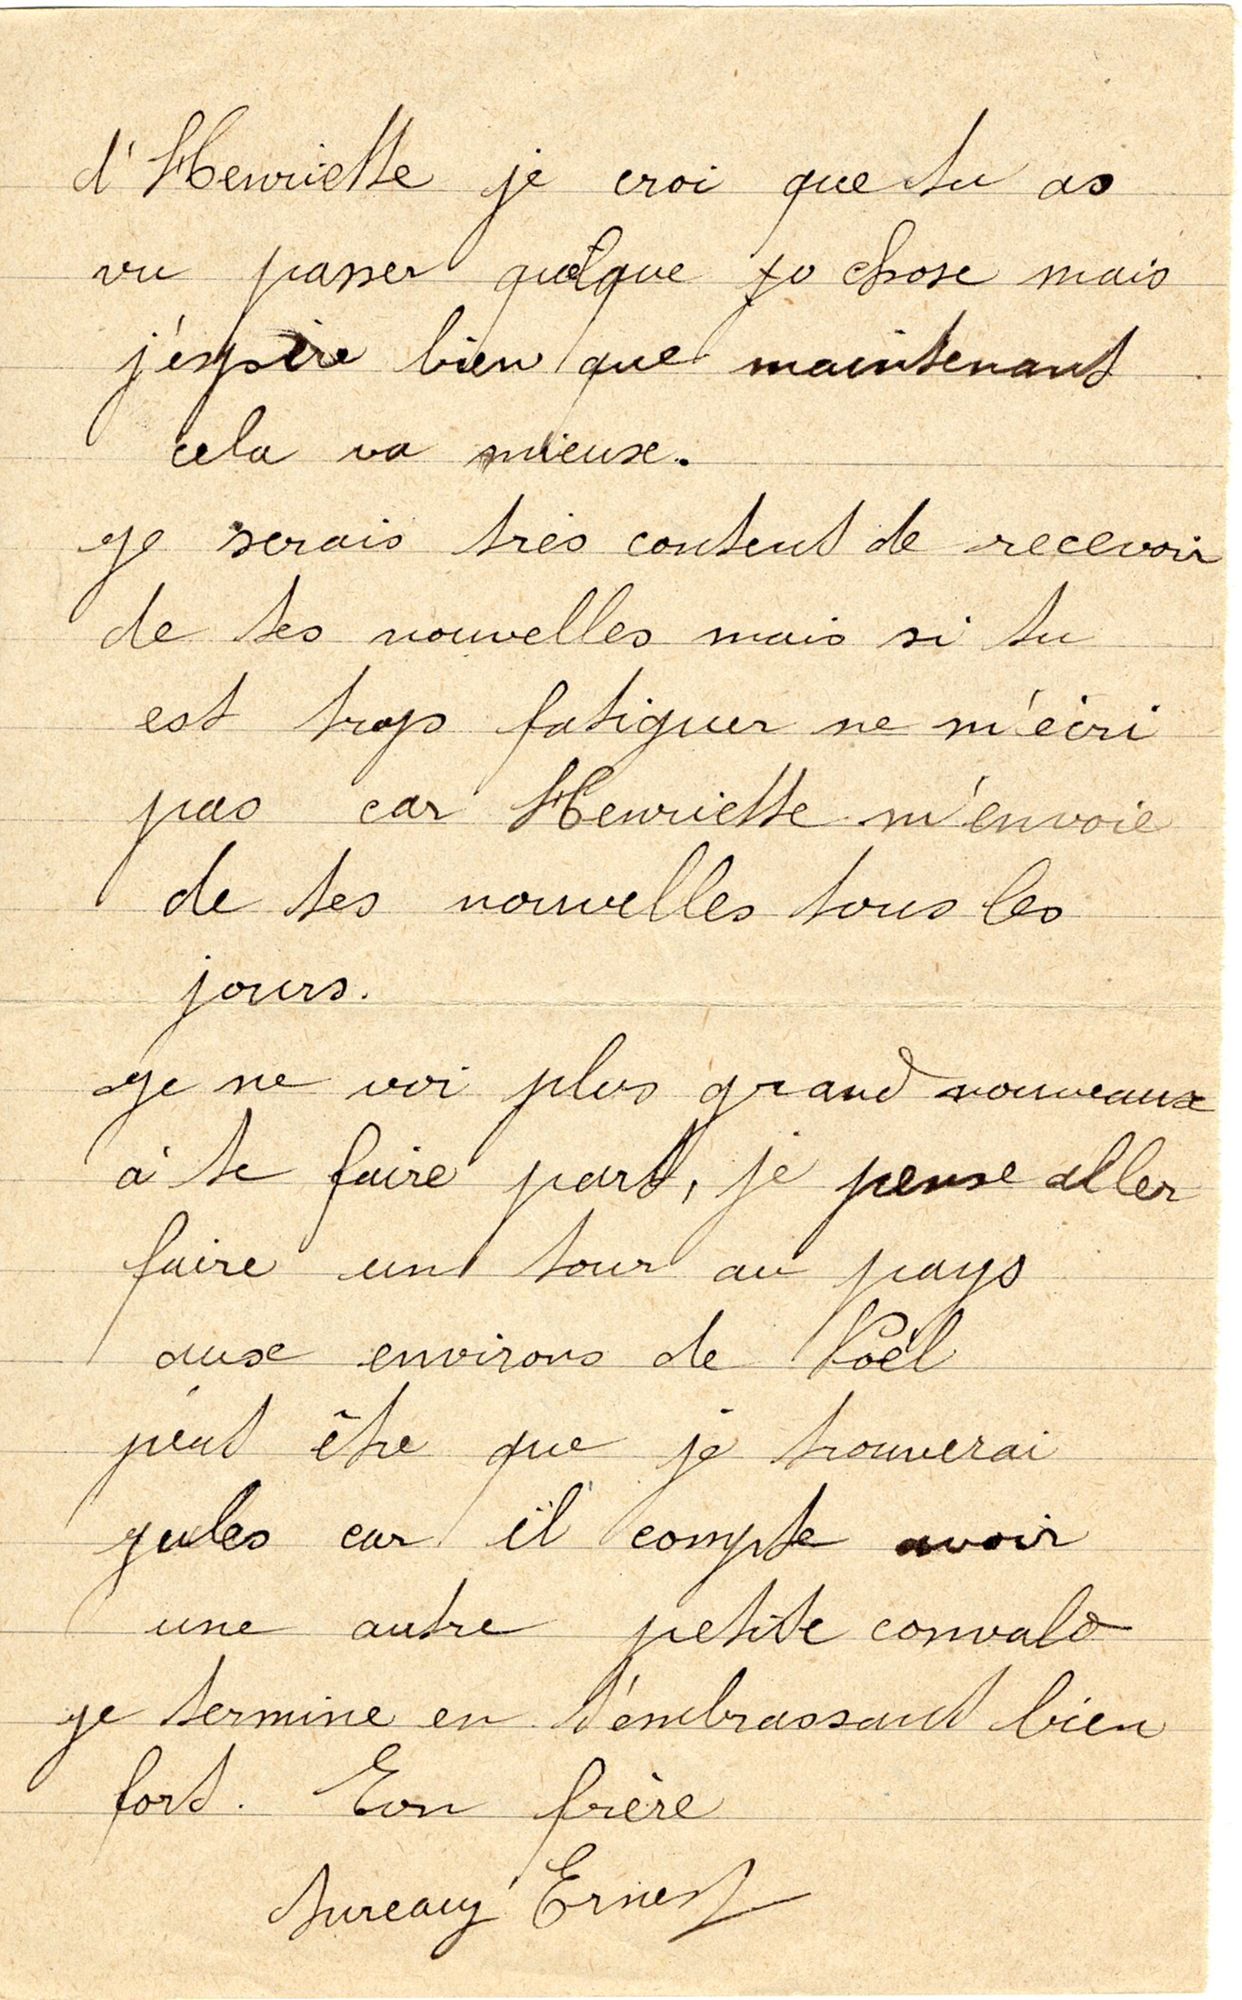 d'Henriette je croi que tu as
vu passer quelque chose mais
j'espère bien que maintenant
cela va mieux.
je serais très content de recevoir
de tes nouvelles mais si tu
est trop fatiguer ne m'écri
pas car Henriette m'envoie
de tes nouvelles tous les
jours.
je ne voi plus grand nouveaux
à te faire part, je pense aller
faire un tour au pays
aux environs de Noël
peut être que je trouverai
jules car il compte avoir
une autre petite convalo
je termine en t'embrassant bien
fort. Ton frère
Ernest